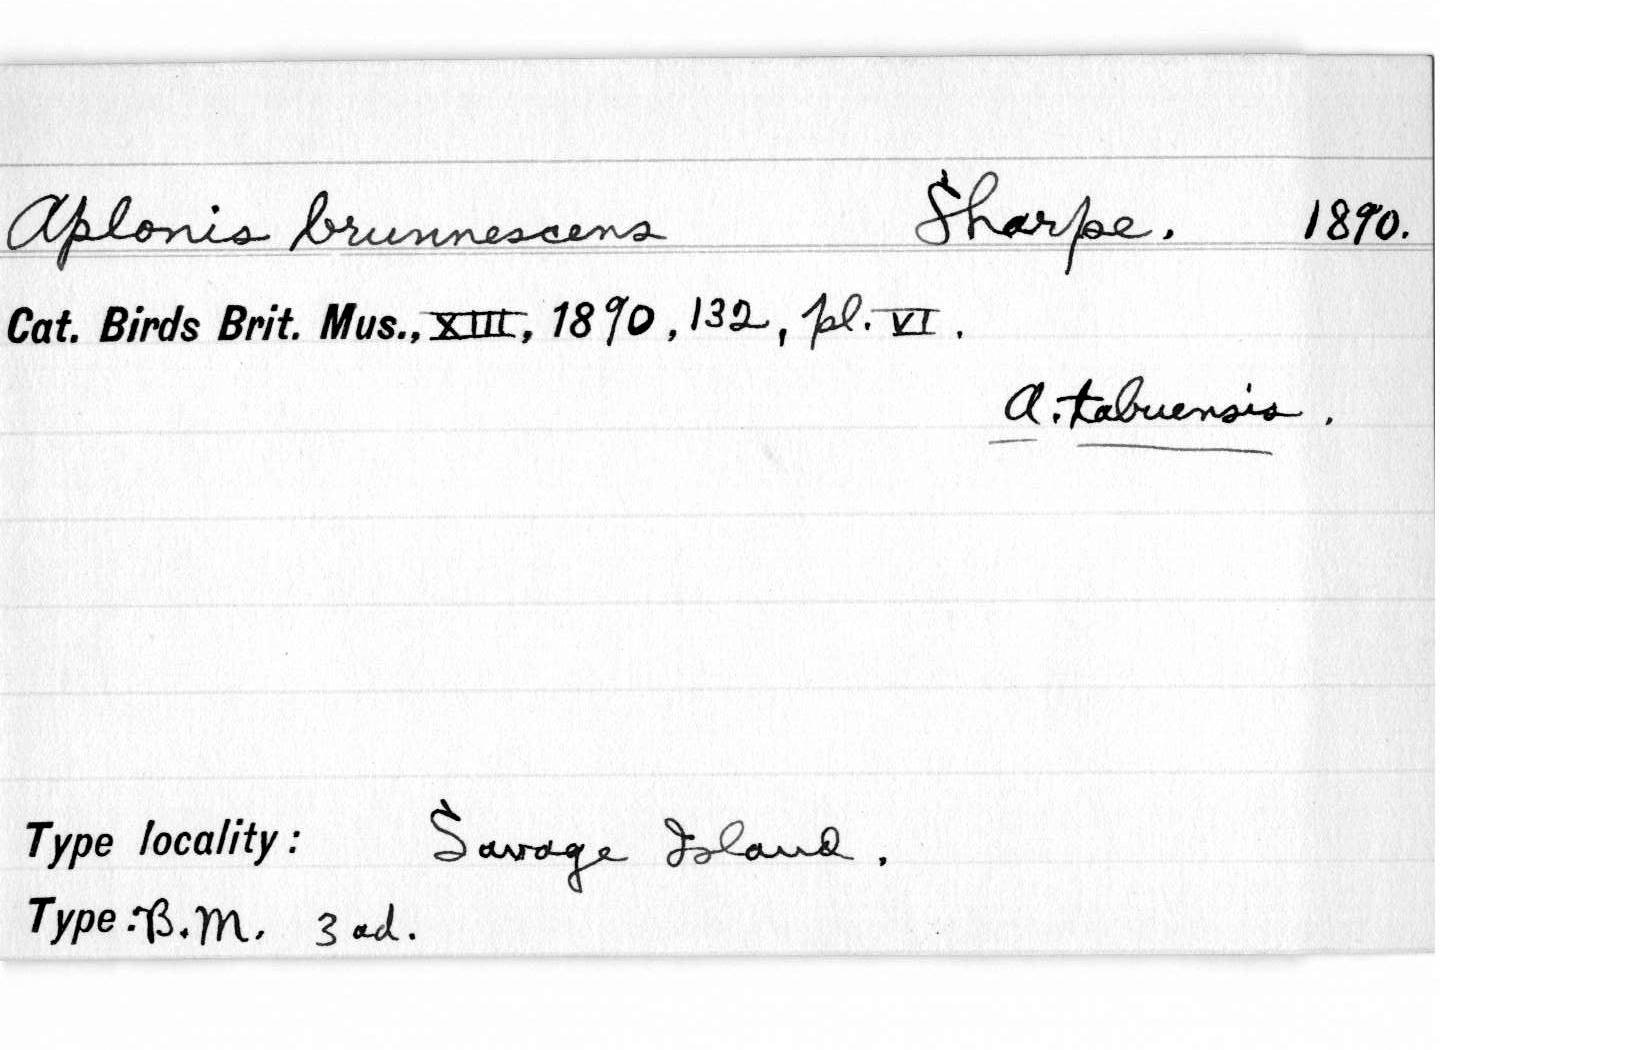 Aplonis brunnescens Sharpe. 1890.
Cat. Birds Brit. Mus., XIII, 1890, 132, pl. VI.
A. tabuensis.
Type locality: Savage Island.
Type: B.M. 3 ad.